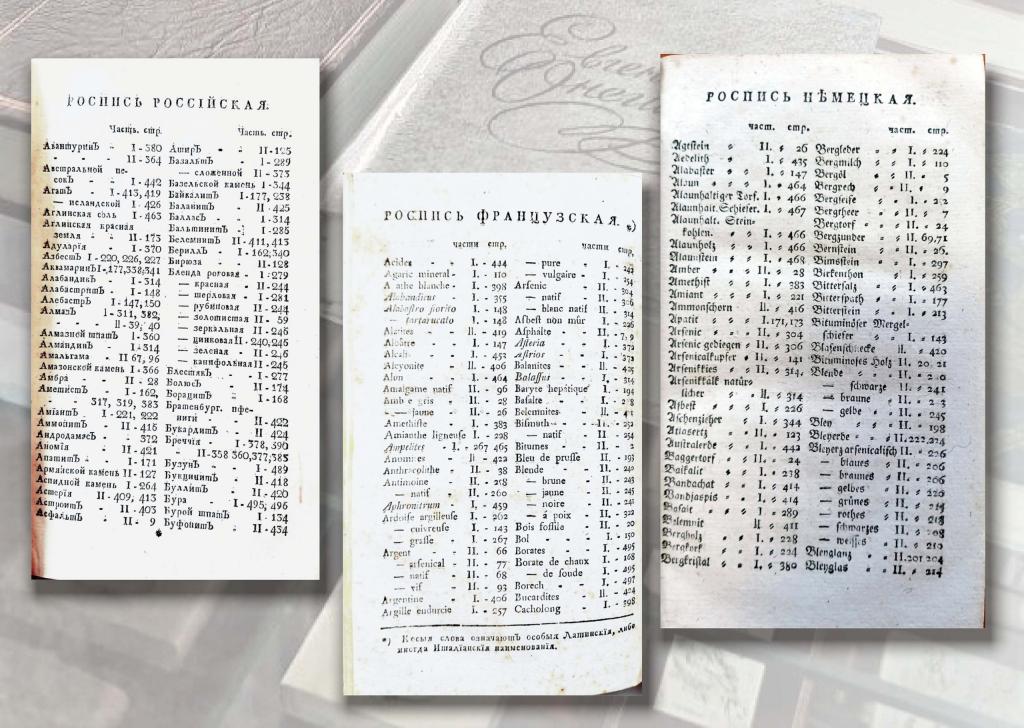 Евгений
Онегин
РОСПИСЬ РОССІЙСКАЯ.
Часть. стр.
Авантуринъ - I - 380
- - II - 364
Австральной пе-
сокъ - I - 442
Агатъ - I - 413, 419
— исландской I - 426
Аглинская соль I - 463
Аглинская красная
земля - II - 173
Адулярія - I - 370
Азбестъ I - 220, 226, 227
Аквамаринъ I - 177, 338, 341
Алабандикъ I - 314
Алабастритъ I - 148
Алебастръ I - 147, 150
Алмазъ I - 311, 382,
- - II - 39, 40
Алмазной шпатъ I - 360
Алмандинъ I - 314
Амальгама - II 67, 96
Амазонской камень I - 366
Амбра - II - 28
Аметистъ I - 162,
- 317, 319, 383
Аміантъ I - 221, 222
Аммонитъ II - 416
Андродамасъ - 372
Аномія - II - 421
Апатитъ - I - 171
Армянской камень II - 127
Аспидной камень I - 264
Астерія II - 409, 413
Астроитъ - II - 403
Асфальтъ - II - 9
Часть. стр.
Аширъ - - II - 125
Базальтъ - I - 289
— сложенной II - 373
Базельской камень I - 344
Байкалитъ I - 177, 238
Баланитъ - II - 425
Балласъ - I - 314
Бальтинитъ - I - 285
Белемнитъ - II - 411, 413
Бериллъ - I - 162, 340
Бирюза - II - 128
Бленда роговая - I - 279
— красная - II - 244
— шерловая - I - 281
— рубиновая - II - 244
— золотистая II - 59
— зеркальная II - 246
— цинковая II - 240, 246
— зеленая - II - 246
— канифольная II - 246
Блестякъ - I - 277
Волюсъ - II - 174
Борацитъ - I - 168
Братенбург. пфе-
ниги - - II - 422
Букардитъ - II - 424
Бреччія - I - 378, 390
- - II - 358 360, 377, 385
Бузунъ - I - 489
Букцинитъ - II - 418
Буллитъ - II - 420
Бура - I - 495, 496
Бурой шпатъ - I - 134
Буфонитъ - II - 434
*
РОСПИСЬ ФРАНЦУЗСКАЯ. *)
части стр.
Acides - I. - 424
Agaric mineral - I. - 110
Agathe blanche - I. - 398
Alabandicus I. - 355
Alabastro fiorito I. - 148
— tartarucato I. - 148
Alatites - II. - 419
Albâtre - I. - 147
Alcali - I. - 453
Alcyonite - II. - 406
Alun - I. - 464
Amalgame natif II. - 96
Ambre gris - II. - 28
— jaune - II. - 26
Amethiste - I. - 383
Amianthe ligneuse I. - 228
Ampelites - I. - 267 465
Anomites - II. - 422
Anthracolithe - II. - 38
Antimoine - II. - 258
— natif - II. - 260
Aphronitrum - I. - 459
Ardoise argilleuse I. - 262
— cuivreuse I. - 143
— grasse I. - 267
Argent - II. - 66
— arsenical - II. - 77
— natif - II. - 68
— vif - II. - 93
Argentine - I. - 406
Argille endurcie I. - 257
части стр.
— pure - I. - 242
— vulgaire - I. - 254
Arsenic - II. - 304
— natif - II. - 306
— blanc natif II. - 314
Asbest non mûr I. - 226
Asphalte - II. - 9
Asteria - I. - 372
Astrios - I. - 372
Balanites - II. - 425
Balassus - I. - 314
Baryte hepatique I. - 194
Basalte - I. - 278
Belemnites - II. - 411
Bismuth - II. - 251
— natif - II. - 254
Bitumes - II. - 2
Bleu de prusse II. - 193
Blende - II. - 240
— brune - II. - 243
— jaune - II. - 245
— noire - II. - 241
— à poix - II. - 322
Bois fossila - II. - 20
Bol - I. - 150
Borates - I. - 495
Borate de chaux I. - 168
— de soude I. - 495
Borech - I. - 497
Bucardites - II. - 424
Cacholong - I. - 398
*) Косыя слова означаютъ особыя Латинскія, либо
иногда Италіанскія наименованія.
РОСПИСЬ НѢМЕЦКАЯ.
част. стр.
Agtstein II. 26
Aedelith I. 435
Alabaster I. 147
Alaun I. 464
Alaunhaltiger Torf. I. 466
Alaunhalt. Schiefer. I. 467
Alaunhalt. Stein-
kohlen. I. 466
Alaunholz I. 466
Alaunstein I. 468
Amber II. 28
Amethist I. 383
Amiant I. 221
Ammonshorn II. 416
Apatit I. 171, 173
Arsenic II. 304
Arsenic gediegen II. 306
Arsenicalkupfer II. 141
Arsenikkies II. 314,
Arsenikkalk natür-
licher II. 314
Asbest I. 226
Aschenzieher I. 344
Atlaserz II. 123
Avanturalerde I. 442
Baggertorf II. 24
Baikalit I. 238
Bandachat I. 414
Bandjaspis I. 414
Basalt I. 289
Belemnit II. 411
Bergholz I. 228
Bergkork I. 224
Bergkristal I. 380
част. стр.
Bergleder I. 224
Bergmilch I. 110
Bergöl II. 5
Bergpech II. 9
Bergseife I. 252
Bergtheer II. 7
Bergtorf II. 24
Bergzunder II. 69,71
Bernstein II. 26.
Bimstein I. 297
Birkenthon I. 259
Bittersalz I. 463
Bitterspath I. 177
Bitterstein I. 213
Bituminöser Mergel-
schiefer I. 143
Blasenschnecke II. 420
Bituminöses Holz II. 20, 21
Blende II. 240
— schwarze II. 241
— braune II. 243
— gelbe II. 245
Bley II. 198
Bleyerde II. 222, 224
Bleyerz arsenicalisch II. 226
— blaues II. 206
— braunes II. 206
— gelbes II. 220
— grünes II. 215
— rothes II. 218
— schwarzes II. 208
— weisses II. 210
Bleyglanz II. 201 204
Bleyglas II. 214